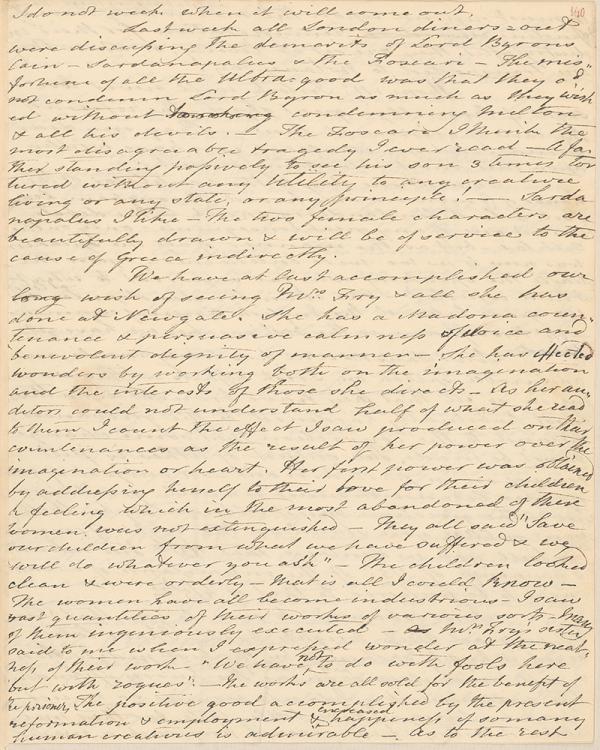 140
I do not wish when it will come out.
Last week all London diners-out
were discussing the demerits of Lord Byrons
Cain - Sardanapalus & the Foscari - The mis-
fortune of all the Ultra-good was that they cd
not condemn Lord Byron as much as they wish
ed without condemning Milton
& all his devils. - The Foscari I think the
most disagreeable tragedy I ever read - A fa
ther standing passively to see his son 3 times tor
tured without any Utility to any creature
living or any state, or any principle. - Sarda
napalus I like - The two female characters are
beautifully drawn & will be of service to the
cause of Greece indirectly.
We have at last accomplished our
long wish of seeing Mrs Fry & all she has
done at Newgate. She has a Madona coun-
tenance & persuasive calmness of voice and
benevolent dignity of manner - She has effected
wonders by working both on the imagination
and the interests of those she directs - As her au-
ditors could not understand half of what she read
to them I count the effect I saw produced on their
countenances as the result of her power over the
imagination or heart. Her first power was obtained
by addressing herself to their love for their children
a feeling which in the most abandoned of these
women was not extinguished - They all said "Save
our children from what we have suffered & we
will do whatever you ask" - The children looked
clean & were orderly - that is all I could know -
The women have all become industrious - I saw
vast quantities of their works of various sorts - Many
of them ingeniously executed - Mrs Frys sister
said to me when I expressed wonder at the neat-
ness of their work - "We have not to do with fools here
but with rogues". - The works are all sold for the benefit of
the prisoners. The positive good accomplished by the present
reformation & employment & increased happiness of so many
human creatures is admirable - As to the rest